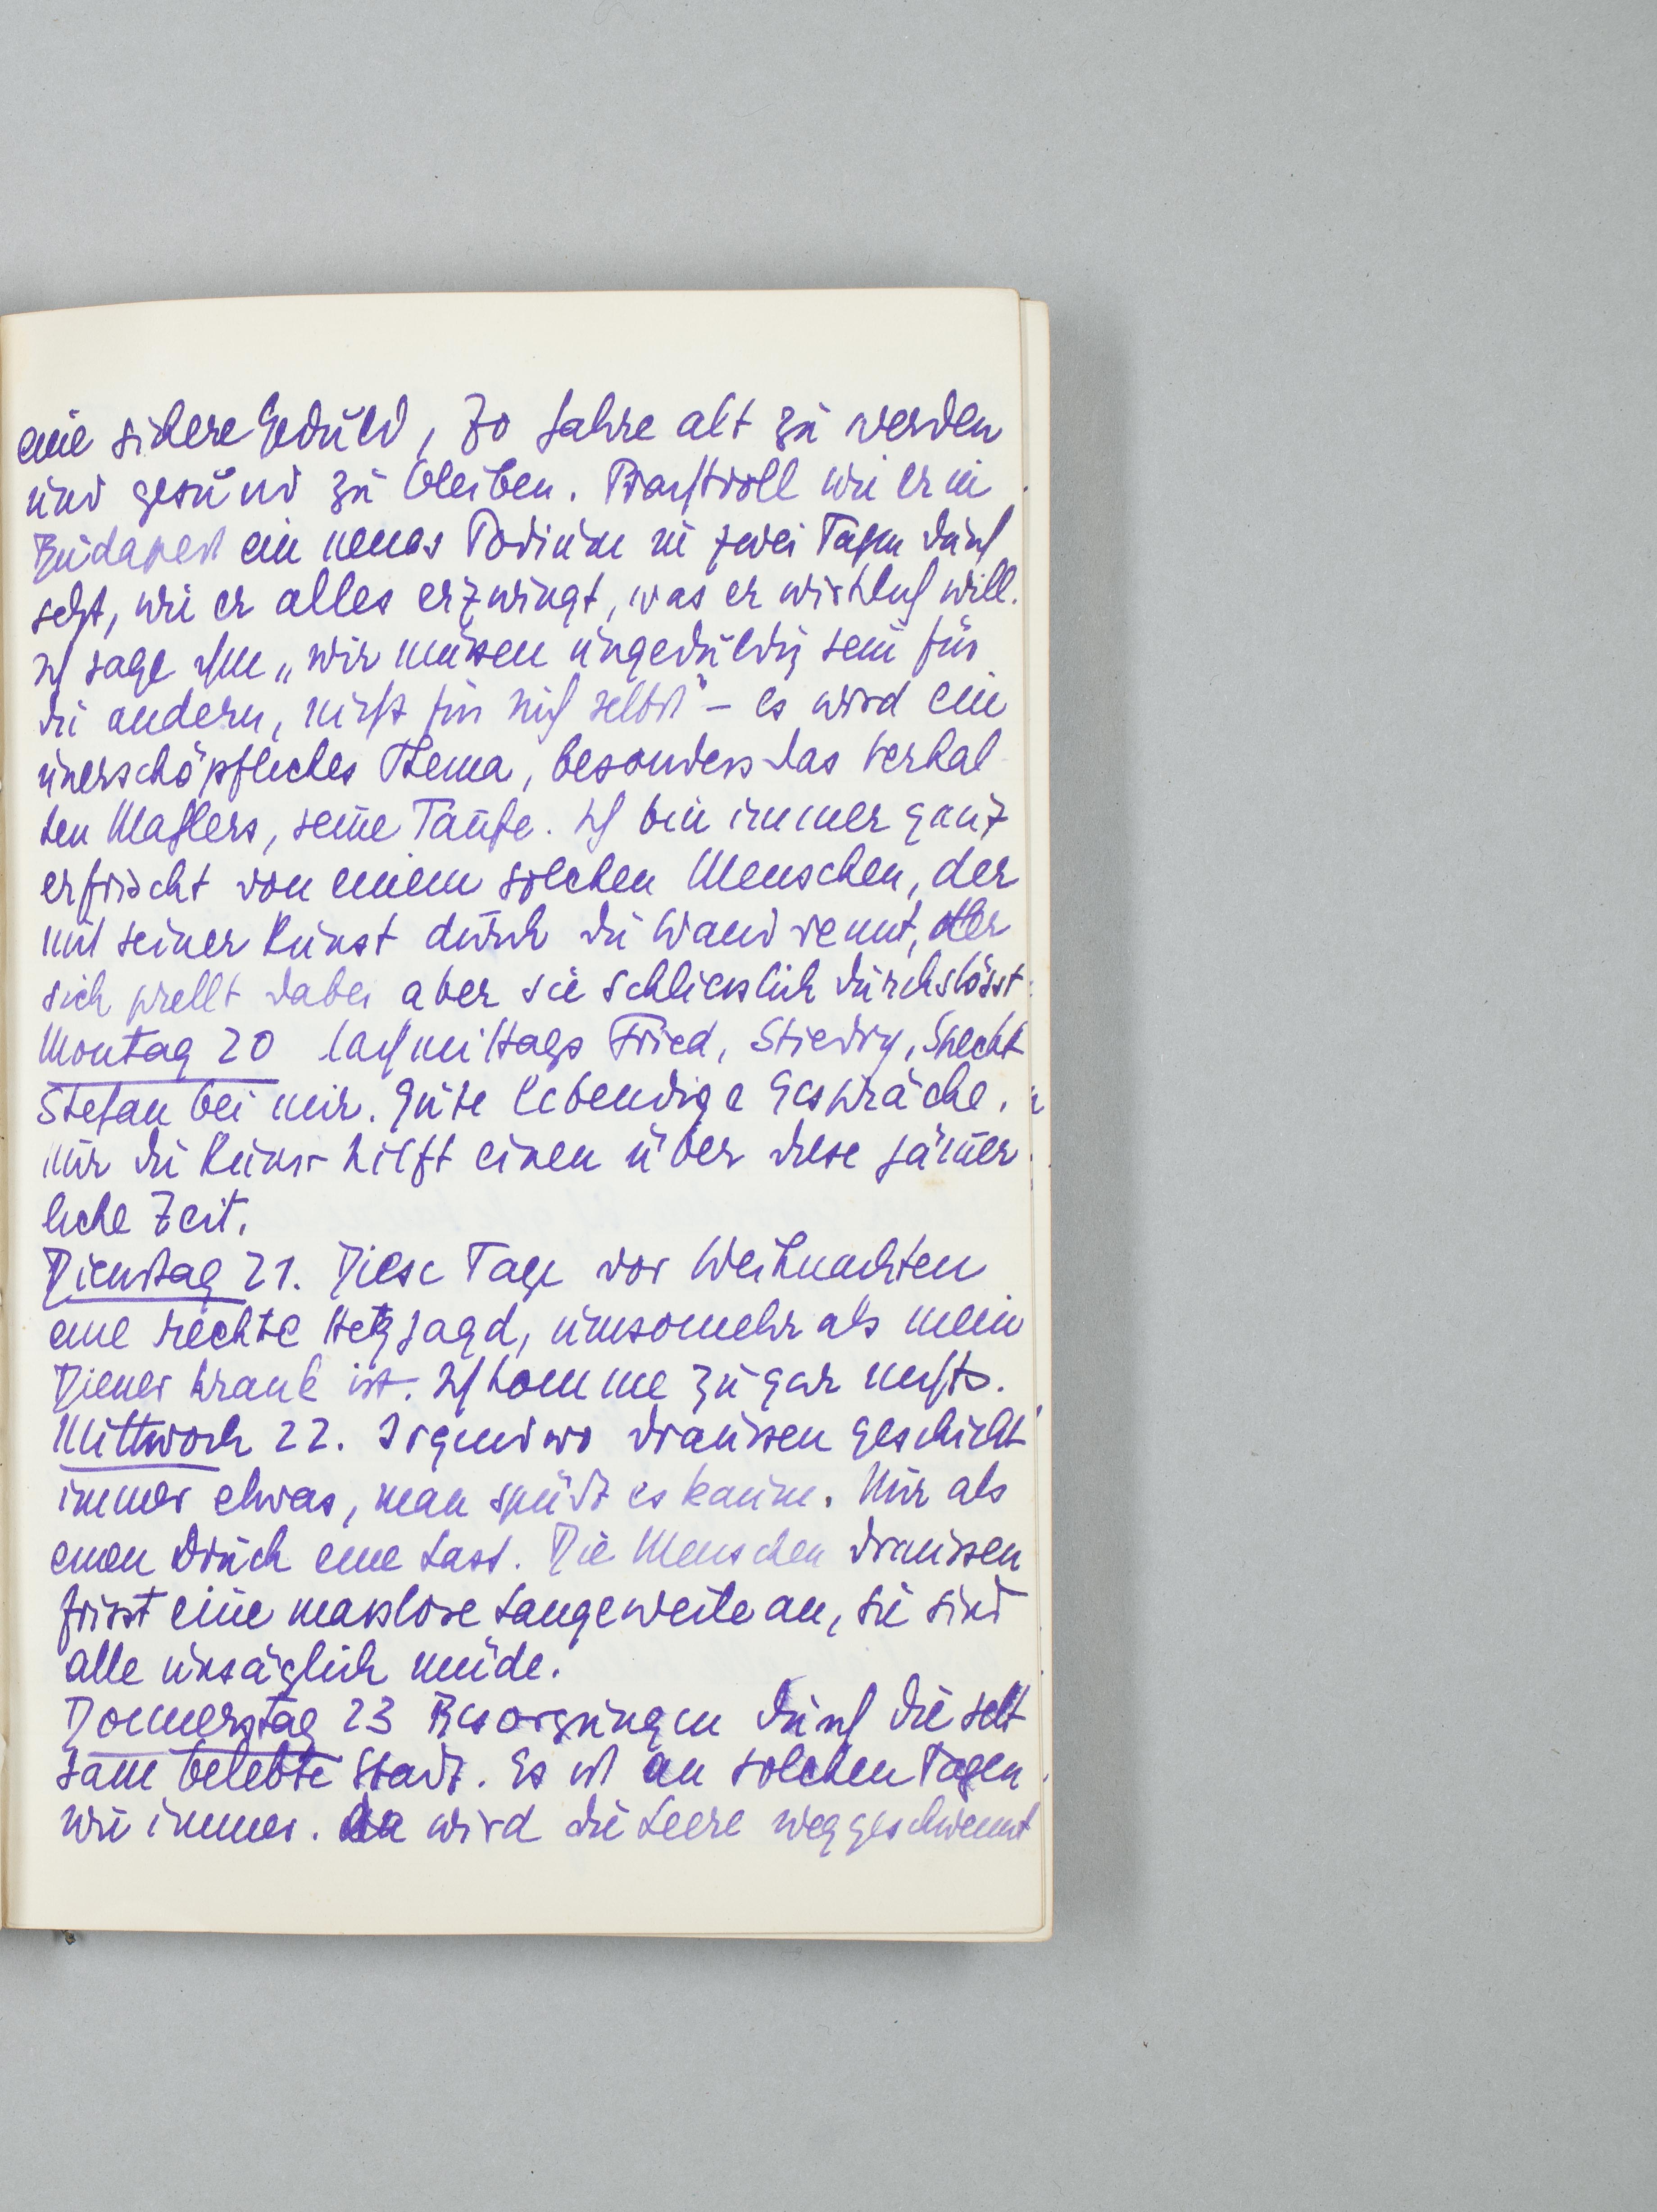 eine sichere Geduld, 70 Jahre alt zu werden
und gesund zu bleiben. Prachtvoll wie er in
Budapest ein neues Podium in zwei Tagen durch
setzt, wie er alles erzwingt, was er wirklich will.
Ich sage ihm „wir müssen ungeduldig sein für
die andern, nicht für sich selbst" – es wird ein
unerschöpfliches Thema, besonders das Verhal
ten Mahlers, seine Taufe. Ich bin immer ganz
erfrischt von einem solchen Menschen, der
mit seiner Kunst durch die Wand rennt, der
sich prellt dabei aber sie schliesslich durchstösst
Montag 20 Nachmittags Fried, Stiedry, Specht
Stefan bei mir. Gute lebendige Gespräche.
Nur die Kunst hilft einen über diese jämer
liche Zeit.
Dienstag 21. Diese Tage vor Weihnachten
eine rechte Hetzjagd, umsomehr als mein
Diener krank ist. Ich komme zu gar nichts.
Mittwoch 22. Irgendwo draussen geschieht
immer etwas, man spürt es kaum. Nur als
einen Druck eine Last. Die Menschen draussen
frisst eine masslose Langeweile an, sie sind
alle unsäglich müde.
Donnerstag 23 Besorgungen durch die selt
same belebte Stadt. Es ist an solchen Tagen
wie immer. Da wird die Leere weggeschwemt